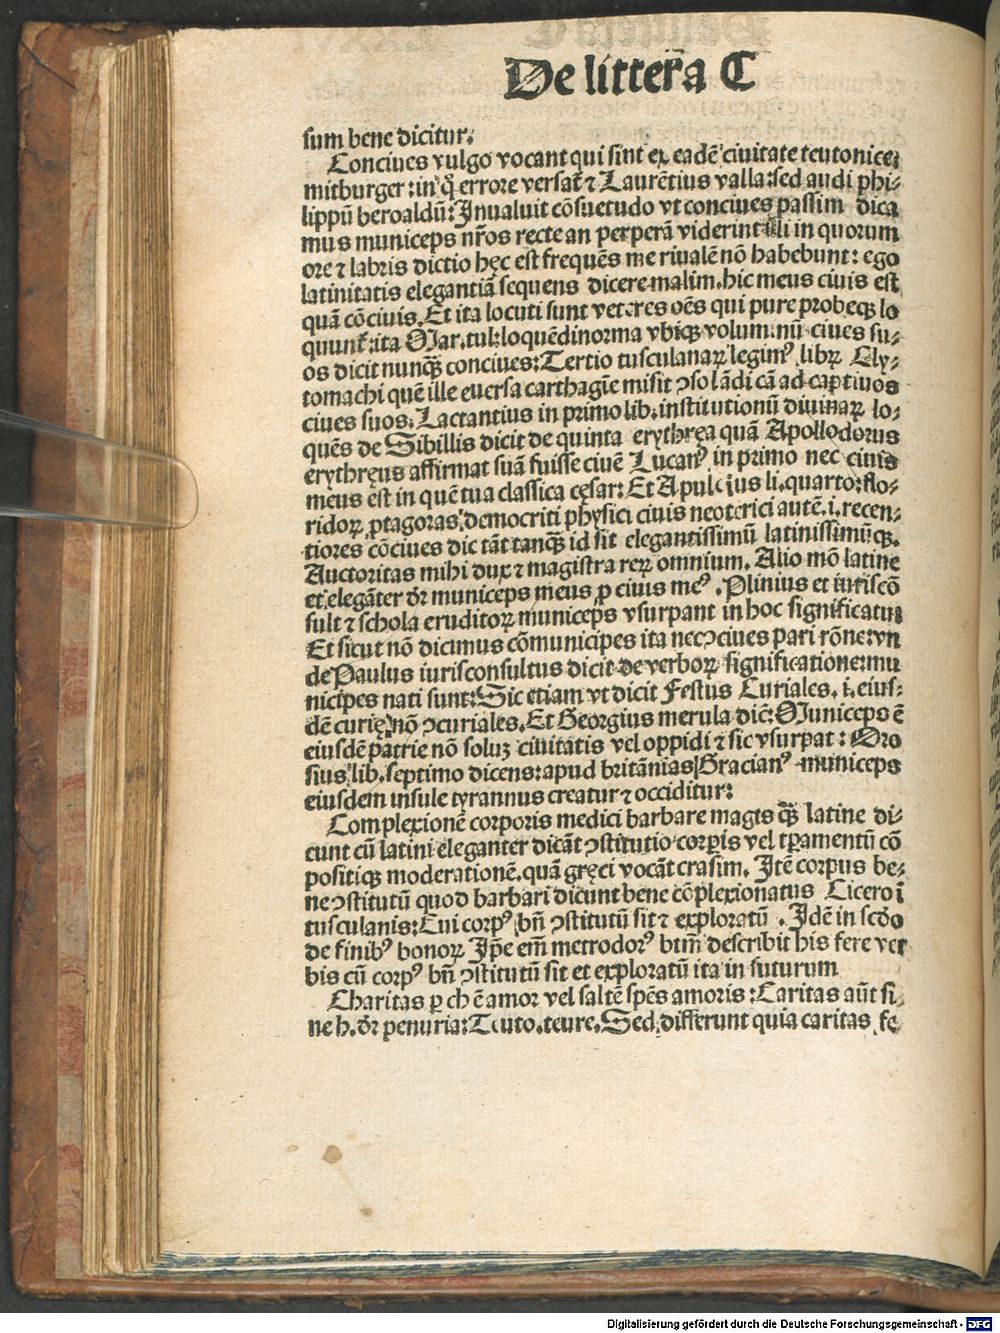 De litter̃a C
sum bene dicitur.
Conciues vulgo vocant qui sint ex eadē ciuitate teutonice:
mitburger: in q̊ errore versat̃ ⁊ Laurētius valla: sed audi phi-
lippū beroaldū: Inualuit cōsuetudo vt conciues passim dica
mus municeps nr̃os recte an perperā viderint illi in quorum
ore ⁊ labris dictio hęc est frequēs me riualē nō habebunt: ego
latinitatis elegantiā sequens dicere malim. hic meus ciuis est
quā cōciuis. Et ita locuti sunt veteres oēs qui pure probeqꝫ lo
quunt̃: ita Mar. tul: loquēdi norma vbiqꝫ volum: nū ciues su-
os dicit nunqꝫ̃ conciues: Tertio tusculanaꝝ legimꝰ libꝝ Cly-
tomachi quē ille euersa carthagīe misit ꝯsolādi cā ad captiuos
ciues suos. Lactantius in primo lib. institutionū diuinaꝝ lo-
quēs de Sibillis dicit de quinta erythręa quā Apollodorus
erythręus affirmat suā fuisse ciuē Lucanꝰ in primo nec ciuis
meus est in quē tua classica cęsar: Et Apuleius li. quarto: flo-
ridoꝝ ꝓtagoras democriti physici ciuis neoterici autē. i. recen-
tiores cōciues dictāt tanqꝫ̃ id sit elegantissimū latinissimūqꝫ.
Auctoritas mihi dux ⁊ magistra reꝝ omnium. Alio mō latine
et elegāter dr̄ municeps meus ꝓ ciuis meꝰ. Plinius et iuriscō
sult ⁊ schola eruditoꝝ municeps vsurpant in hoc significatu:
Et sicut nō dicimus cōmunicipes ita nec ꝯciues pari rōne: vn
de Paulus iurisconsultus dicit de verboꝝ significatione: mu
nicipes nati sunt: Sic etiam vt dicit Festus Curiales. i. eius-
dē curię nō ꝯcuriales. Et Georgius merula dic̄: Municeps ē
eiusdē patrie nō soluꝫ ciuitatis vel oppidi ⁊ sic vsurpat: Oro
sius lib. septimo dicens: apud britānias Gracianꝰ municeps
eiusdem insule tyrannus creatur ⁊ occiditur:
Complexionē corporis medici barbare magis qꝫ̃ latine di-
cunt cū latini eleganter dicāt ꝯstitutio corꝑis vel tꝑamentū cō
positiqꝫ moderationē. quā gręci vocāt crasim. Itē corpus be-
ne ꝯstitutū quod barbari dicunt bene cōplexionatus Cicero ī
tusculanis: Cui corpꝰ bñ ꝯstitutū sit ⁊ exploratū. Idē in scd̄o
de finibꝰ bonoꝝ Ip̄e em̄ metrodorꝰ btm̄ describit his fere ver
bis cū corpꝰ bñ ꝯstitutū sit et exploratū ita in futurum
Charitas ꝑ ch ē amor vel saltē spēs amoris: Caritas aūt si-
ne h. dr̄ penuria: Teuto. teure. Sed differunt quia caritas fe
Digitalisierung gefördert durch die Deutsche Forschungsgemeinschaft - DFG